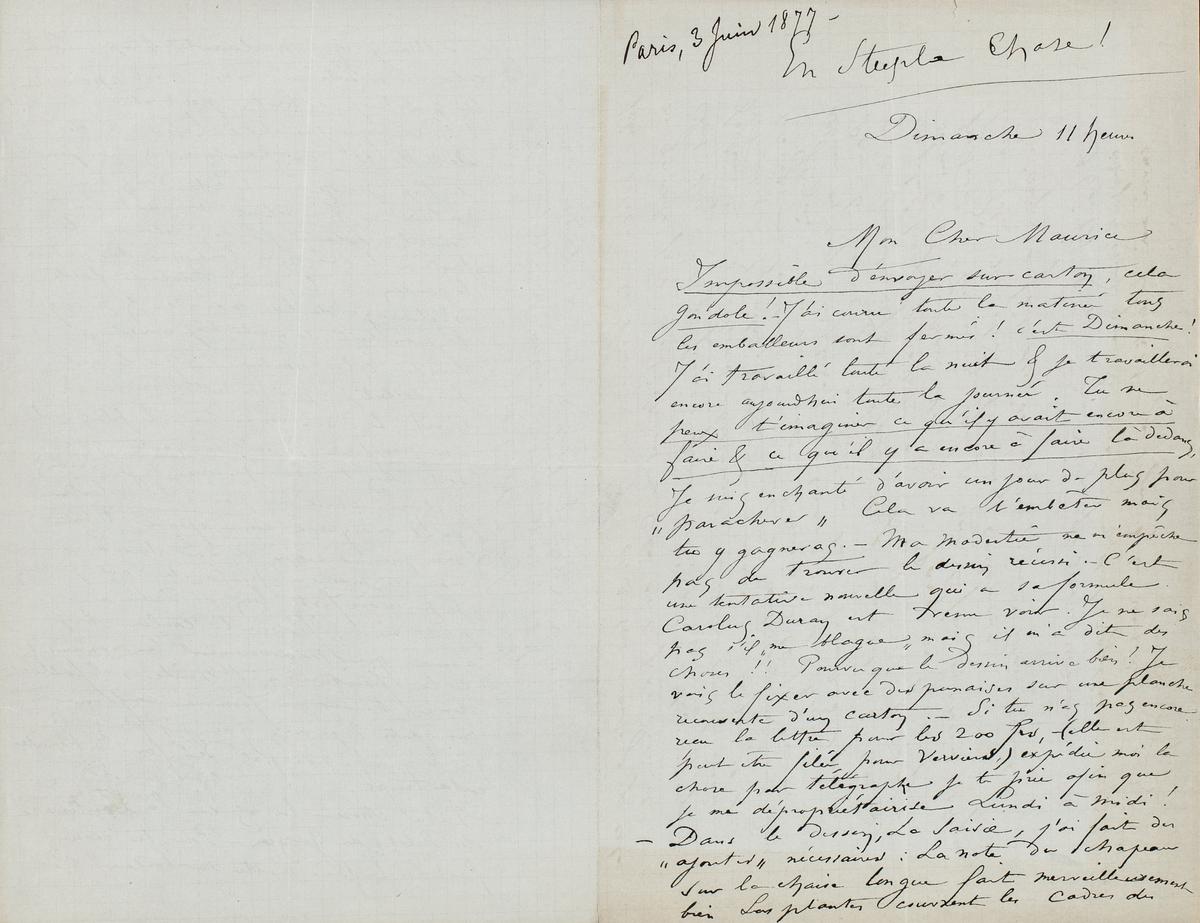 Paris, 3 Juin 1877 -
En Steeple Chase!
Dimanche 11 heures
Mon Cher Maurice
Impossible d'envoyer sur carton, cela
gondole! - J'ai couru toute la matinée tous
les emballeurs sont fermés! c'est Dimanche!
J'ai travaillé toute la nuit & je travaillerai
encore aujourdhui toute la journée. Tu ne
peux t'imaginer ce qu'il y avait encore à
faire & ce qu'il y a encore à faire là dedans,
Je suis enchanté d'avoir un jour de plus pour
"parachever" Cela va t'embêter mais
tu y gagneras. - Ma modestie ne m'empêche
pas de trouver le dessin réussi. - C'est
une tentative nouvelle qui a sa formule.
Carolus Duran est venu voir. Je ne sais
pas s'il "me blague" mais il m'a dit des
choses!! Pourvu que le dessin arrive bien! Je
vais le fixer avec des punaises sur une planche
recouverte d'un carton. - Si tu n'as pas encore
reçu la lettre pour les 200 frs, (elle est
peut être filée pour Verviers,) expédie moi la
chose par télégraphe je te prie afin que
je me dépropriétairise Lundi à midi!
- Dans le dessin, La Saisie, j'ai fait des
"ajoutes" nécessaires: La note du chapeau
sur la chaise longue fait merveilleusement
bien Les plantes couvrent les cadres des